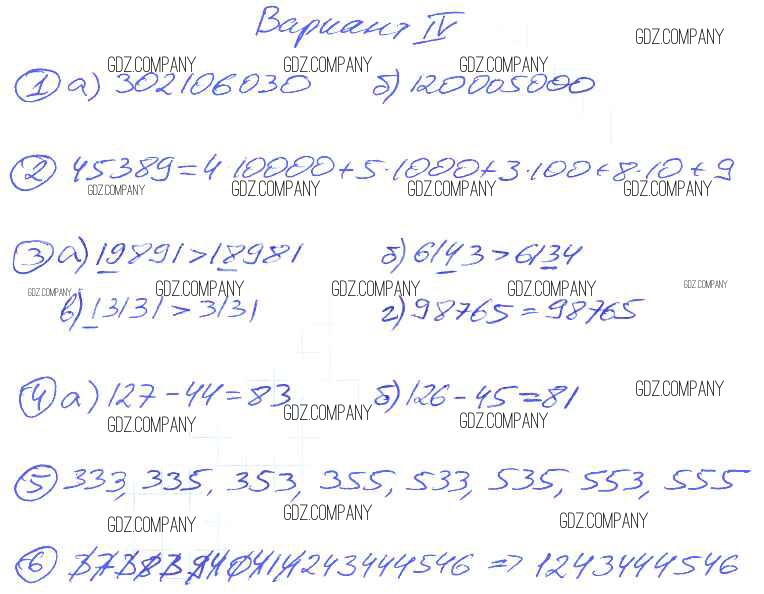 Вариант IV
GDZ.COMPANY
GDZ.COMPANY GDZ.COMPANY GDZ.COMPANY
1 а) 302106030 б) 120005000
2 45389=4·10000+5·1000+3·100+8·10+9
GDZ.COMPANY GDZ.COMPANY GDZ.COMPANY GDZ.COMPANY
3 а) 19891>18981 б) 6143>6134
GDZ.COMPANY GDZ.COMPANY GDZ.COMPANY GDZ.COMPANY GDZ.COMPANY
в) 13131>3131 г) 98765=98765
4 а) 127-44=83 б) 126-45=81
GDZ.COMPANY GDZ.COMPANY GDZ.COMPANY GDZ.COMPANY
5 333, 335, 353, 355, 533, 535, 553, 555
GDZ.COMPANY GDZ.COMPANY GDZ.COMPANY
6 243444546 => 1243444546